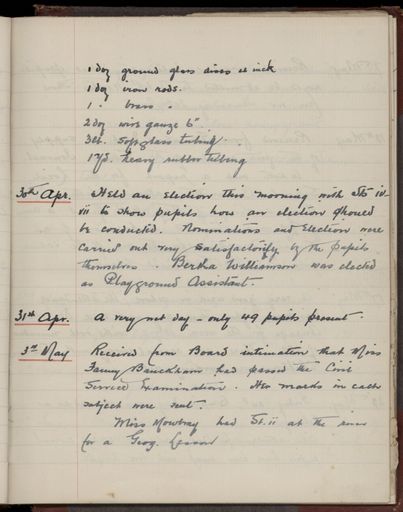 1 doz ground glass discs 2 inch
1 doz iron rods.
1 . brass .
2 doz wire gauze 6"
3 lb. soft glass tubing
1 Yd. heavy rubber tubing
30th Apr. Held an Election this morning with Sts iv-
vii to show pupils how an election should
be conducted. Nominations and Election were
carried out very satisfactorily by the pupils
themselves. Bertha Williamson was elected
as Playground Assistant.
31st Apr. A very wet day - only 49 pupils present.
3rd May Received from Board intimation that Miss
Fanny had passed the Civil
Service Examination. Her marks in each
subject were sent.
Miss Mowbray had St. ii at the river
for a Geog. Lesson